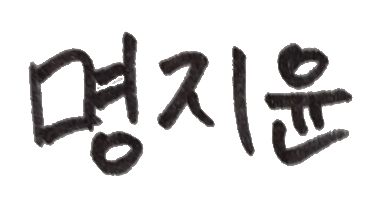 명지윤